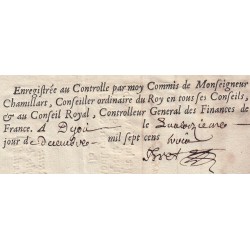 Enregistrée au Controlle par moy Commis de Monseigneur
Chamillart, Conseiller ordinaire du Roy en tous ses Conseils,
& au Conseil Royal, Controlleur General des Finances de
France. A Dijon le Quatorzieme
jour de Decembre mil sept cens trois